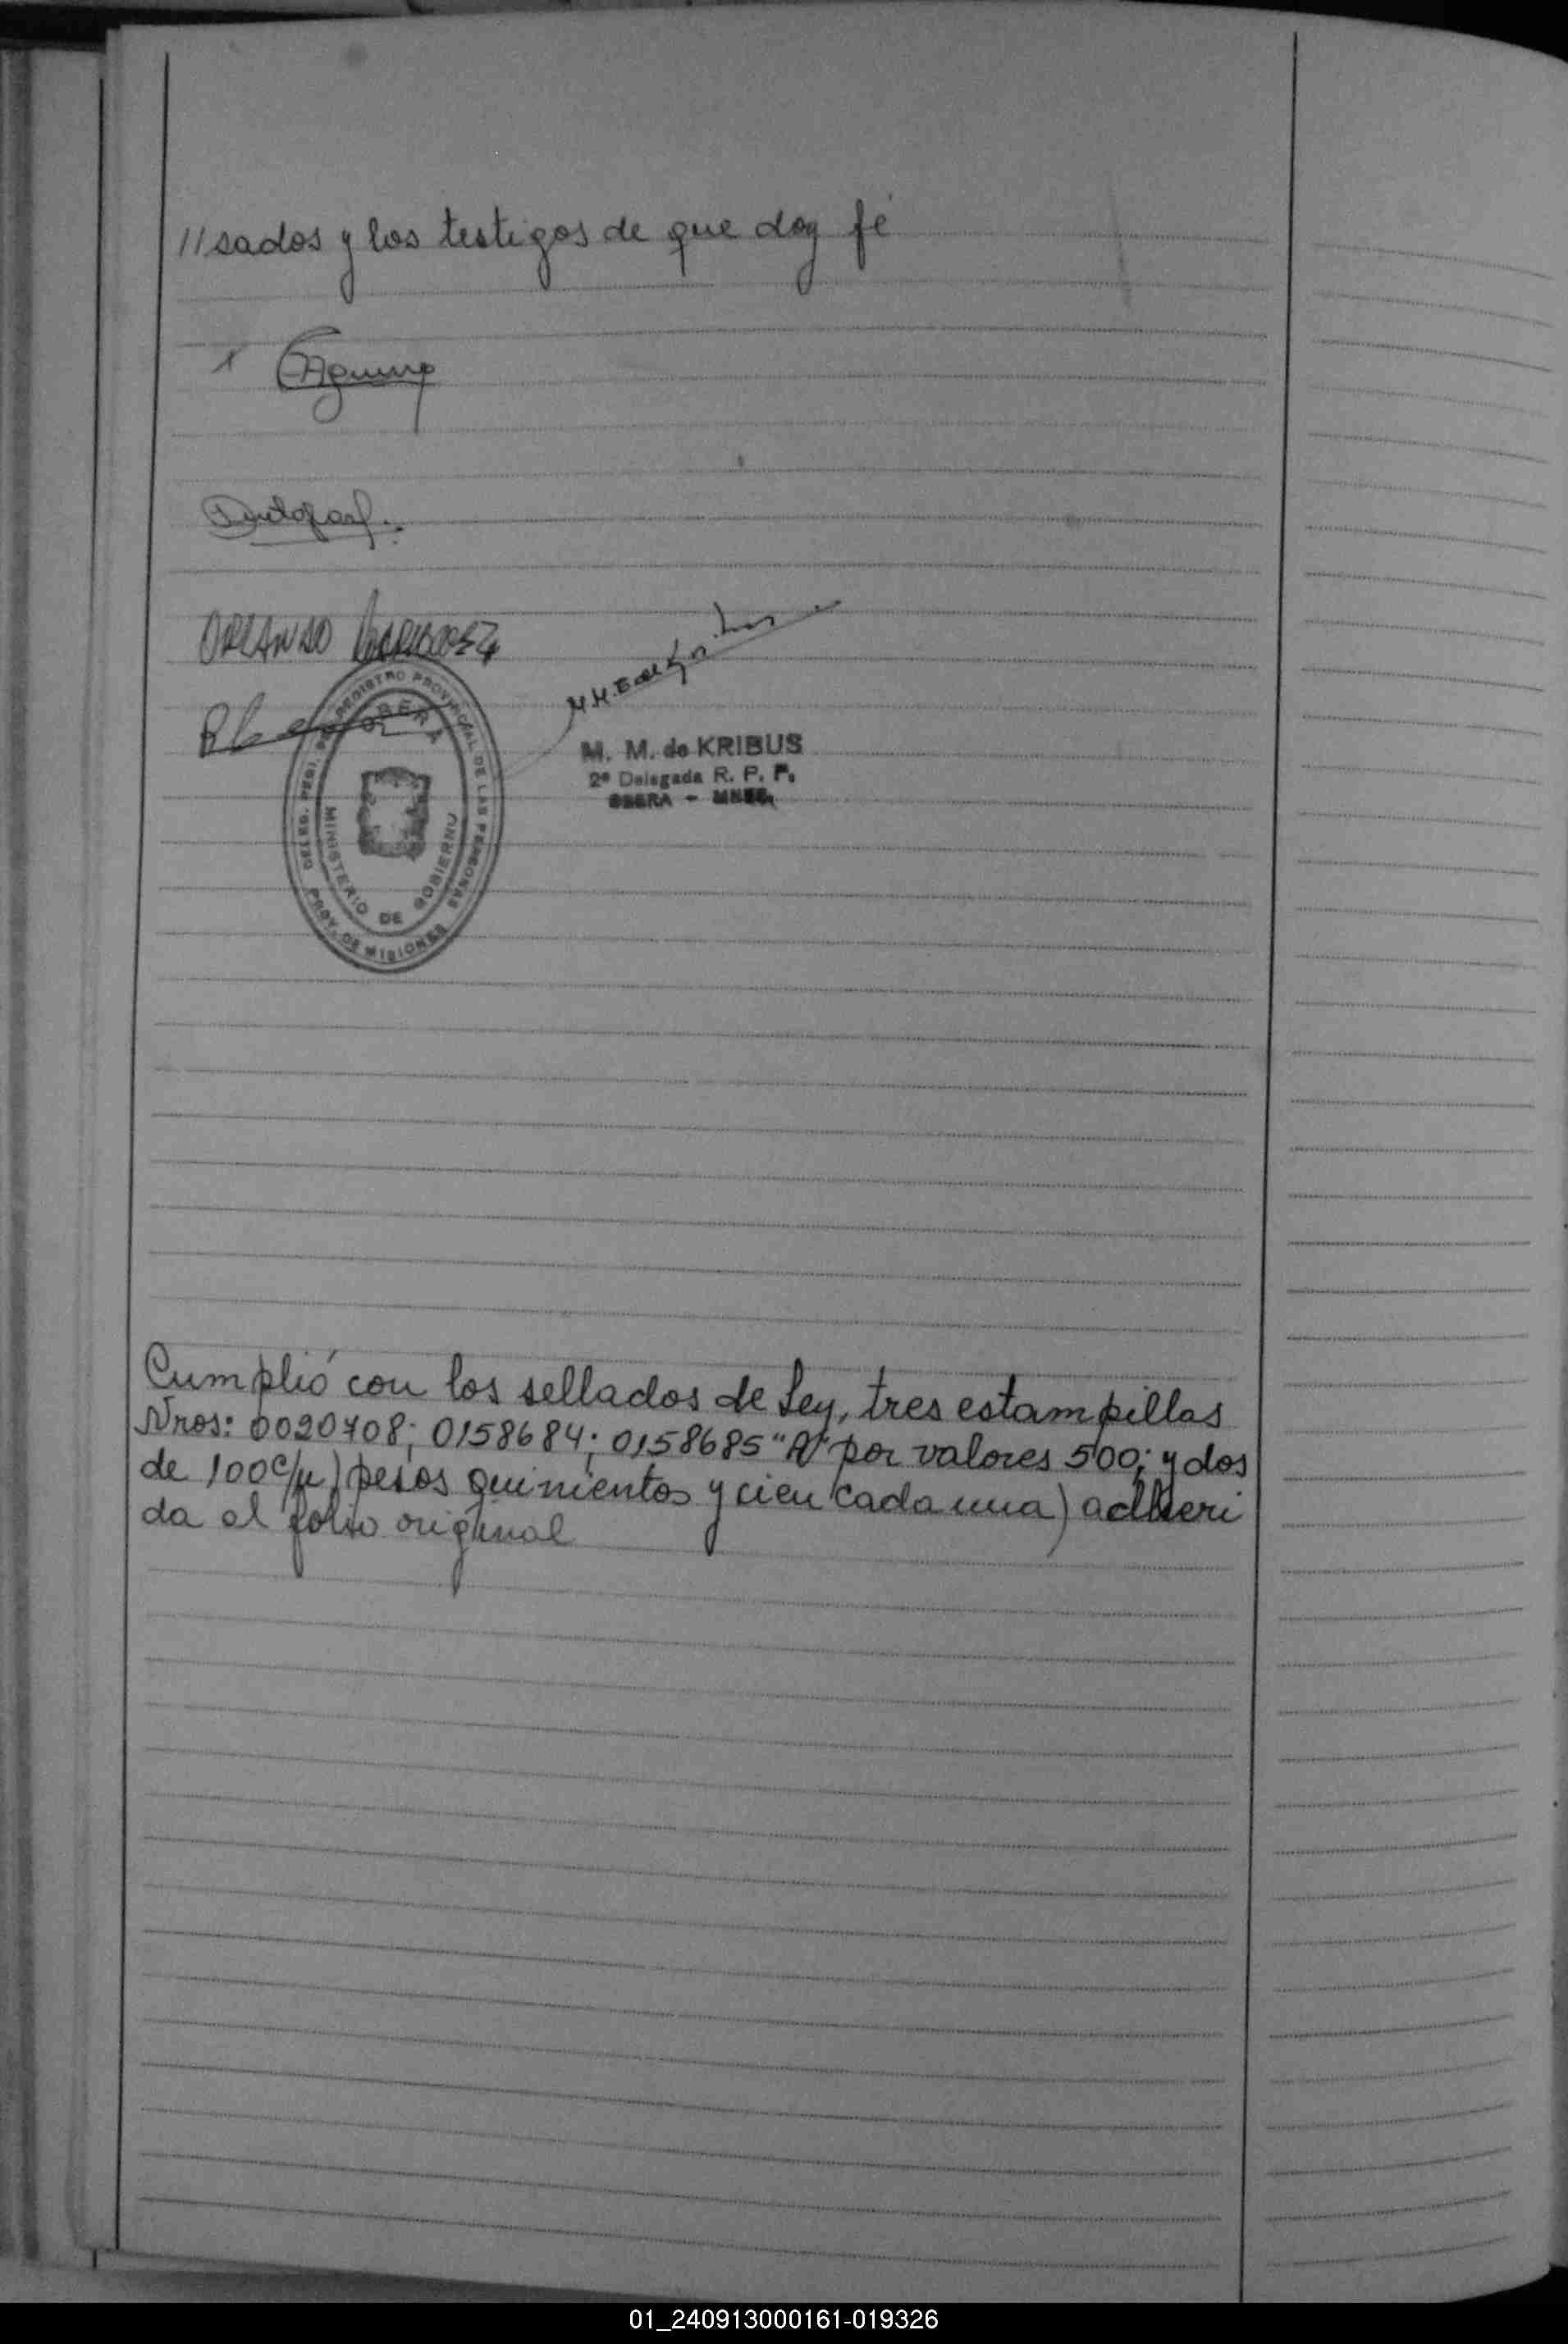 //sados y los testigos de que doy fé
x
ORLANDO
REGISTRO PROVINCIAL DE LAS PERSONAS
OBERA
MINISTERIO DE GOBIERNO
PROV. DE MISIONES
M. M. de KRIBUS
2ª Delegada R. P. P.
OBERA - MNES.
Cumplió con los sellados de Ley, tres estampillas
Nros: 0020708; 0158684; 0158685 "A" por valores 500; y dos
de 100 c/u) pesos quinientos y cien cada una) adheri
da al folio original
01_240913000161-019326